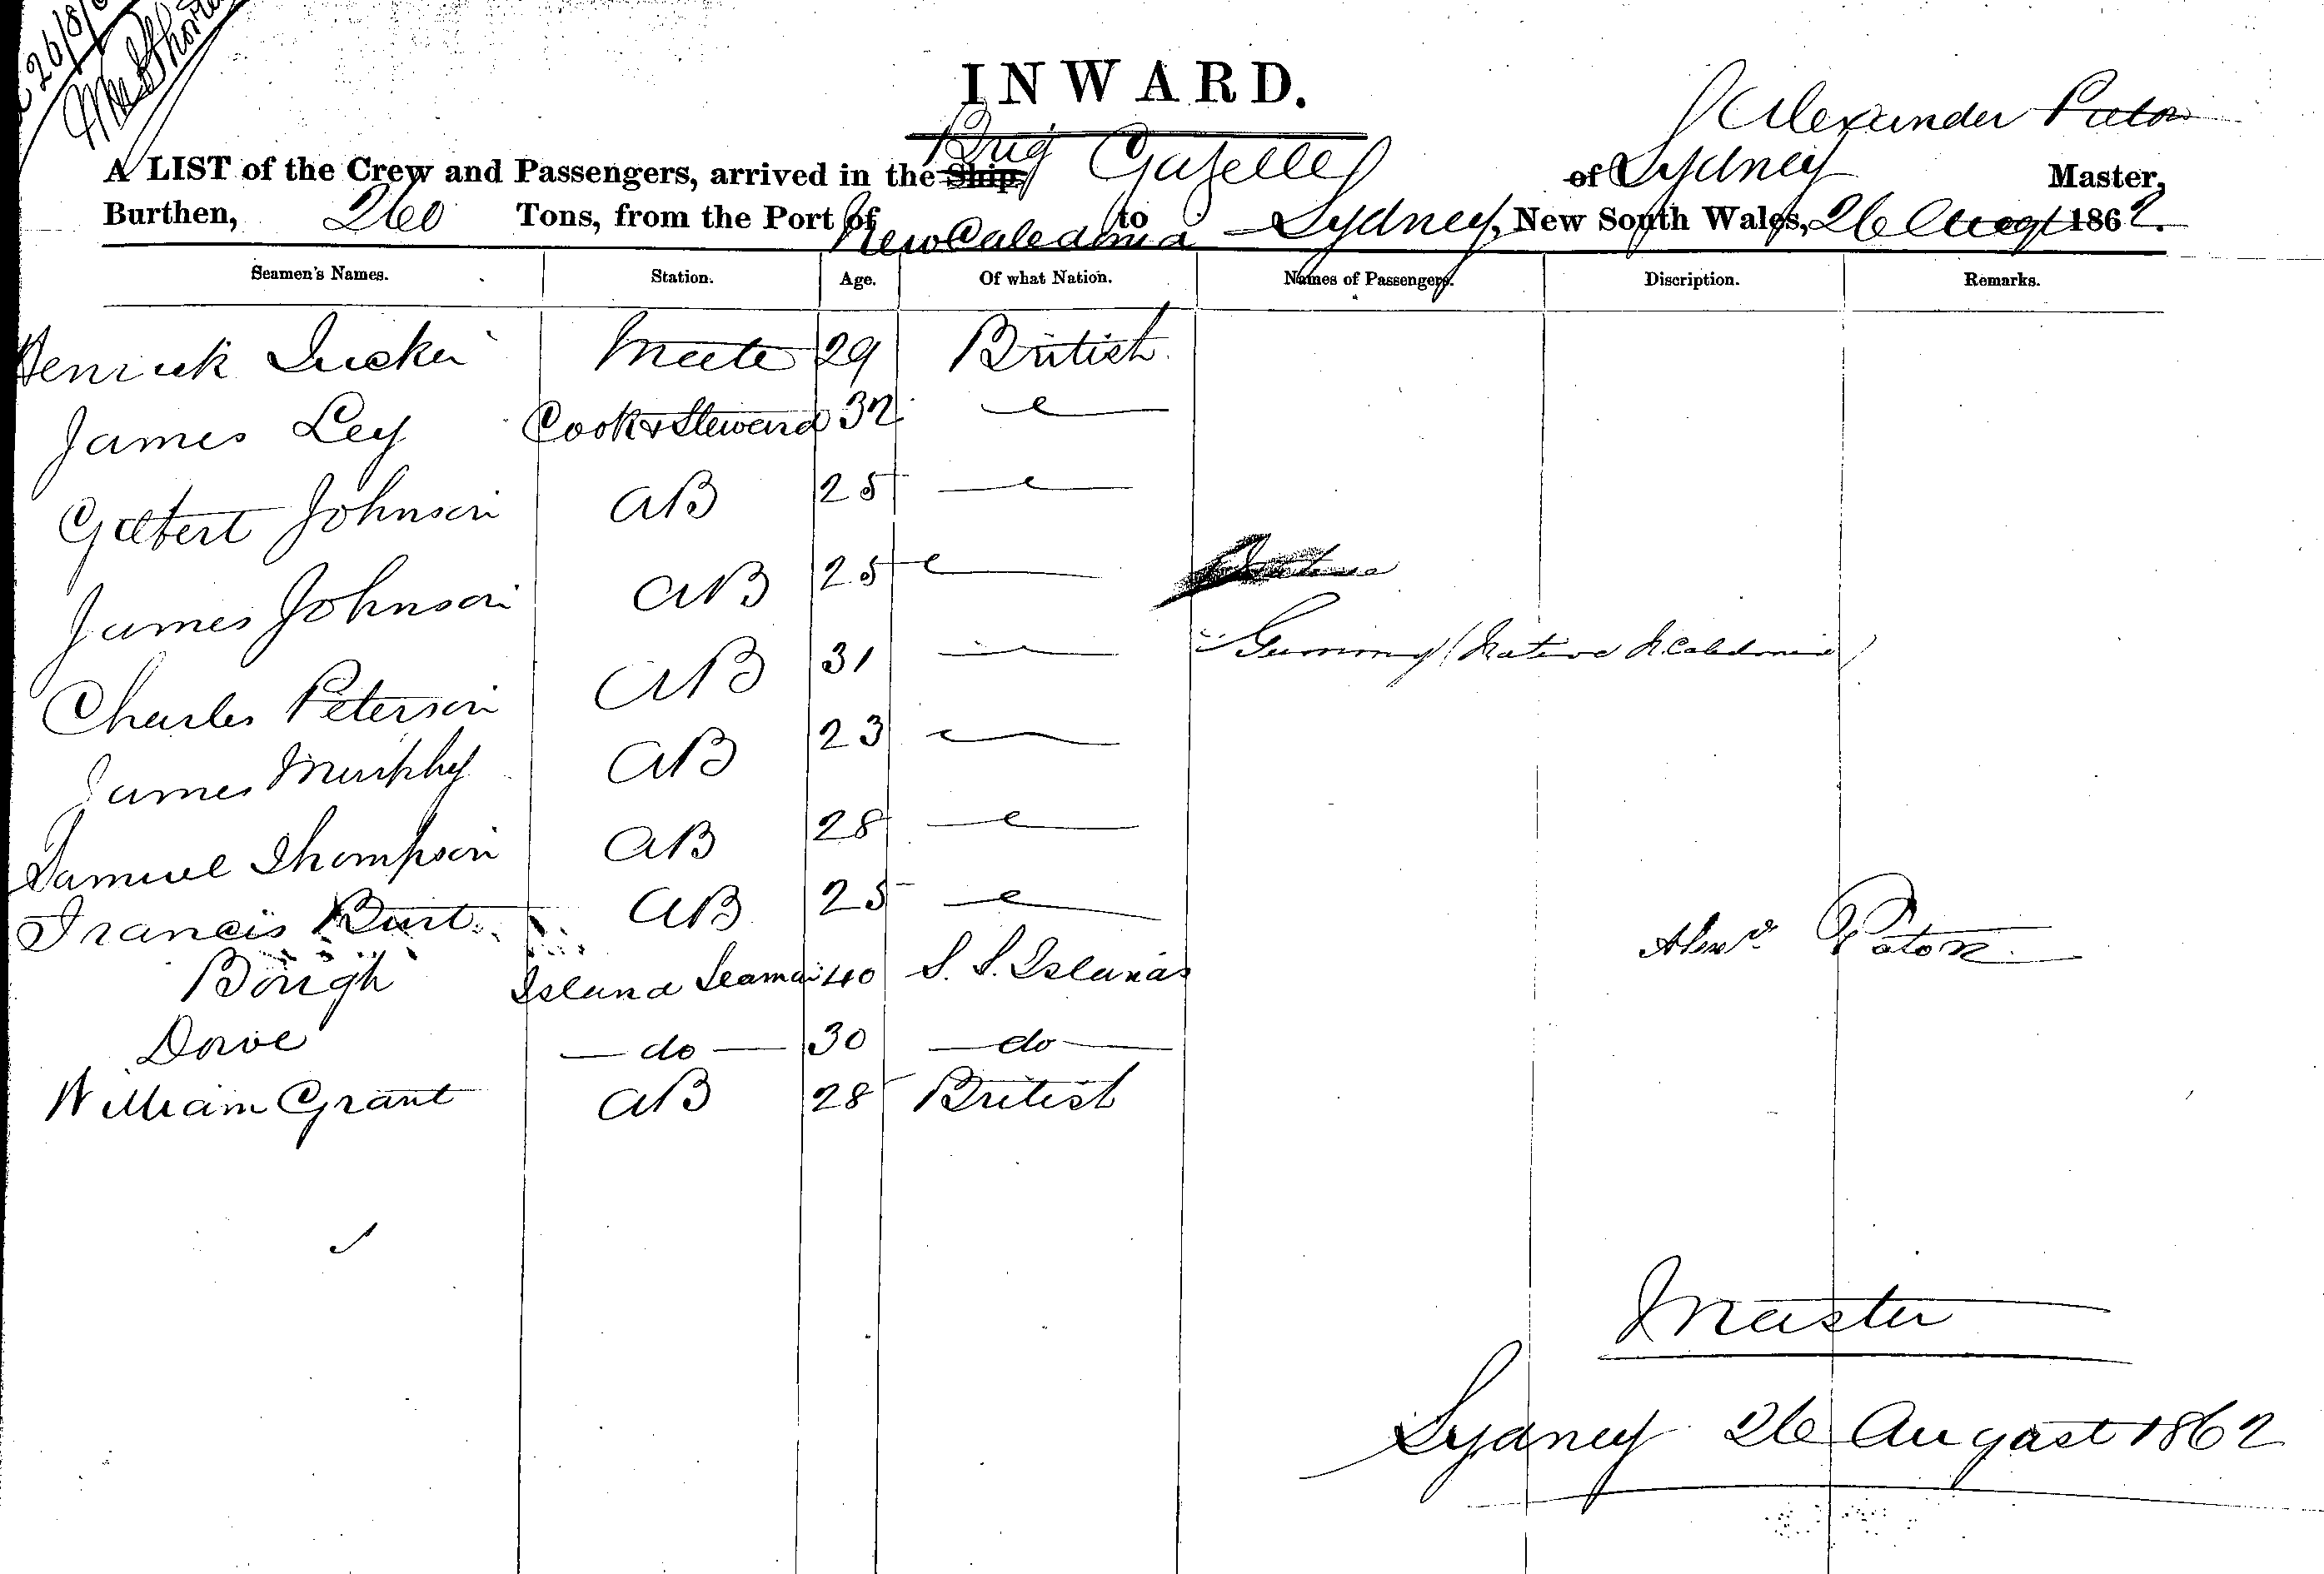 26/8/
INWARD.
Alexander Paton
A LIST of the Crew and Passengers, arrived in the Ship Brig Gazelle of Sydney Master,
Burthen, 260 Tons, from the Port of New Caledonia to Sydney, New South Wales, 26 Augt 1862.
Seamen's Names. Station. Age. Of what Nation. Names of Passengers. Discription. Remarks.
Mate 29 British
James Ley Cook & Steward 32
Gilbert Johnson AB 25
James Johnson AB 25
Charles Peterson AB 31 (Native N. Caledonia)
James Murphy AB 23
Samuel Thompson AB 28
Francis Burt AB 25
Alexr Paton
Bough Island Seaman 40 S. S. Islands
Dove do 30 do
William Grant AB 28 British
Master
Sydney 26 August 1862